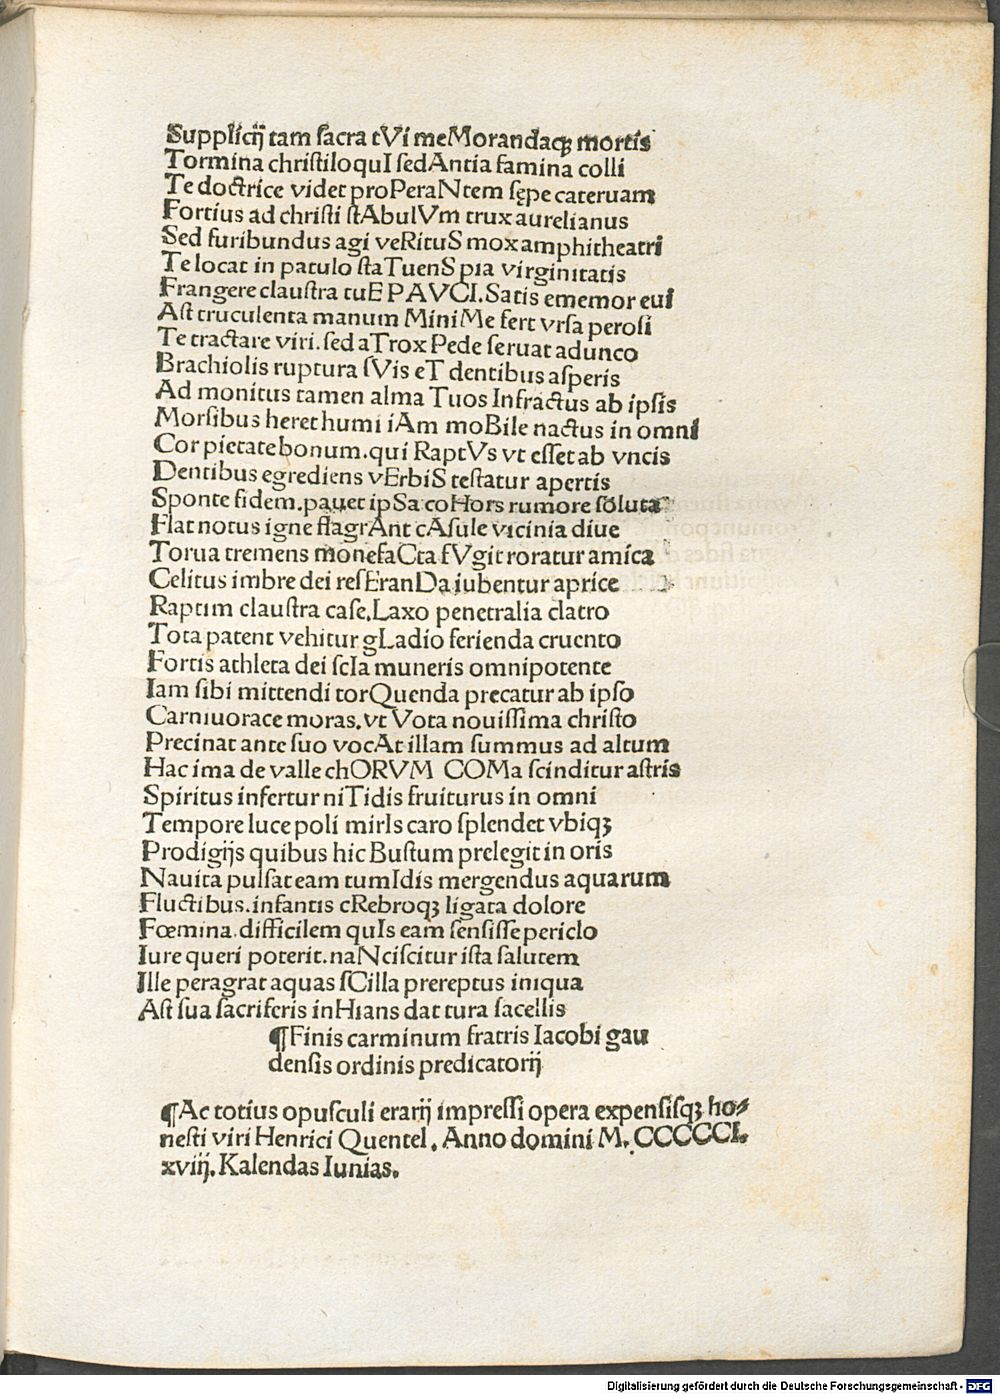 Supplicij tam sacra tVi meMorandaqꝫ mortis
Tormina christiloquI sedAntia famina colli
Te doctrice videt proPeraNtem sępe cateruam
Fortius ad christi stAbulVm trux aurelianus
Sed furibundus agi veRituS mox amphitheatri
Te locat in patulo staTuenS pia virginitatis
Frangere claustra tuE PAVCI. Satis ememor eui
Ast truculenta manum MiniMe fert vrsa perosi
Te tractare viri. sed aTrox Pede seruat adunco
Brachiolis ruptura sVis eT dentibus asperis
Ad monitus tamen alma Tuos Infractus ab ipsis
Morsibus heret humi iAm moBile nactus in omni
Cor pietate bonum. qui RaptVs vt esset ab vncis
Dentibus egrediens vErbiS testatur apertis
Sponte fidem. pauet ipSa coHors rumore soluta
Flat notus igne flagrAnt cAsule vicinia diue
Torua tremens monefaCta fVgit roratur amica
Celitus imbre dei resEranDa iubentur aprice
Raptim claustra case. Laxo penetralia clatro
Tota patent vehitur gLadio ferienda cruento
Fortis athleta dei scIa muneris omnipotente
Iam sibi mittendi torQuenda precatur ab ipso
Carniuorace moras. vt Vota nouissima christo
Precinat ante suo vocAt illam summus ad altum
Hac ima de valle chORVM COMa scinditur astris
Spiritus infertur niTidis fruiturus in omni
Tempore luce poli mirIs caro splendet vbiqꝫ
Prodigijs quibus hic Bustum prelegit in oris
Nauita pulsat eam tumIdis mergendus aquarum
Fluctibus. infantis cRebroqꝫ ligata dolore
Fœmina. difficilem quIs eam sensisse periclo
Iure queri poterit. naNciscitur ista salutem
Ille peragrat aquas sCilla prereptus iniqua
Ast sua sacriferis inHians dat tura sacellis
¶Finis carminum fratris Iacobi gau
densis ordinis predicatorij
¶Ac totius opusculi erarij impressi opera expensisqꝫ ho⸗
nesti viri Henrici Quentel. Anno domini M. CCCCCI.
xviij. Kalendas Iunias.
Digitalisierung gefördert durch die Deutsche Forschungsgemeinschaft - DFG